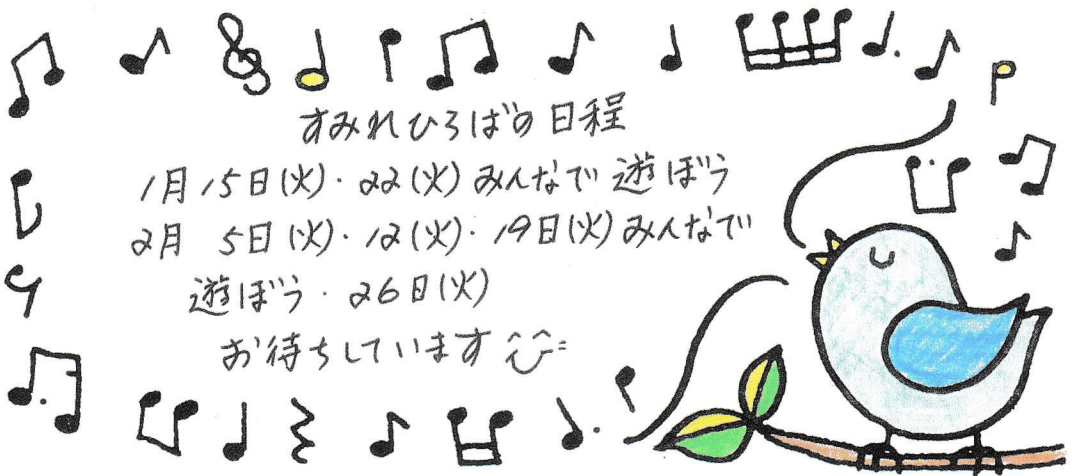 すみれひろばの日程
1月15日(火)・22(火)みんなで遊ぼう
2月 5日(火)・12(火)・19日(火)みんなで
遊ぼう・26日(火)
お待ちしています